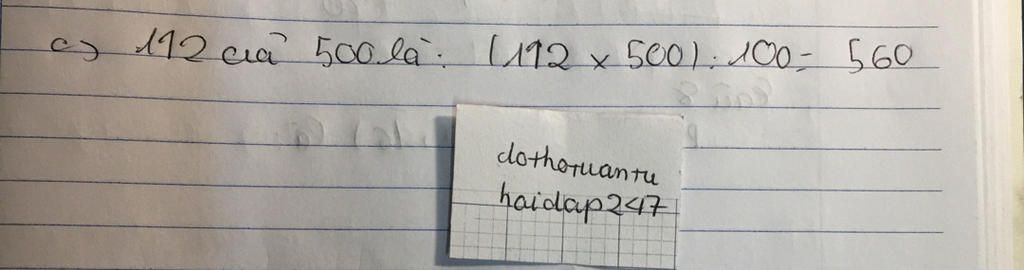 c) 112 của 500 là: (112 x 500) : 100 = 560
dothotuantu
haidap247